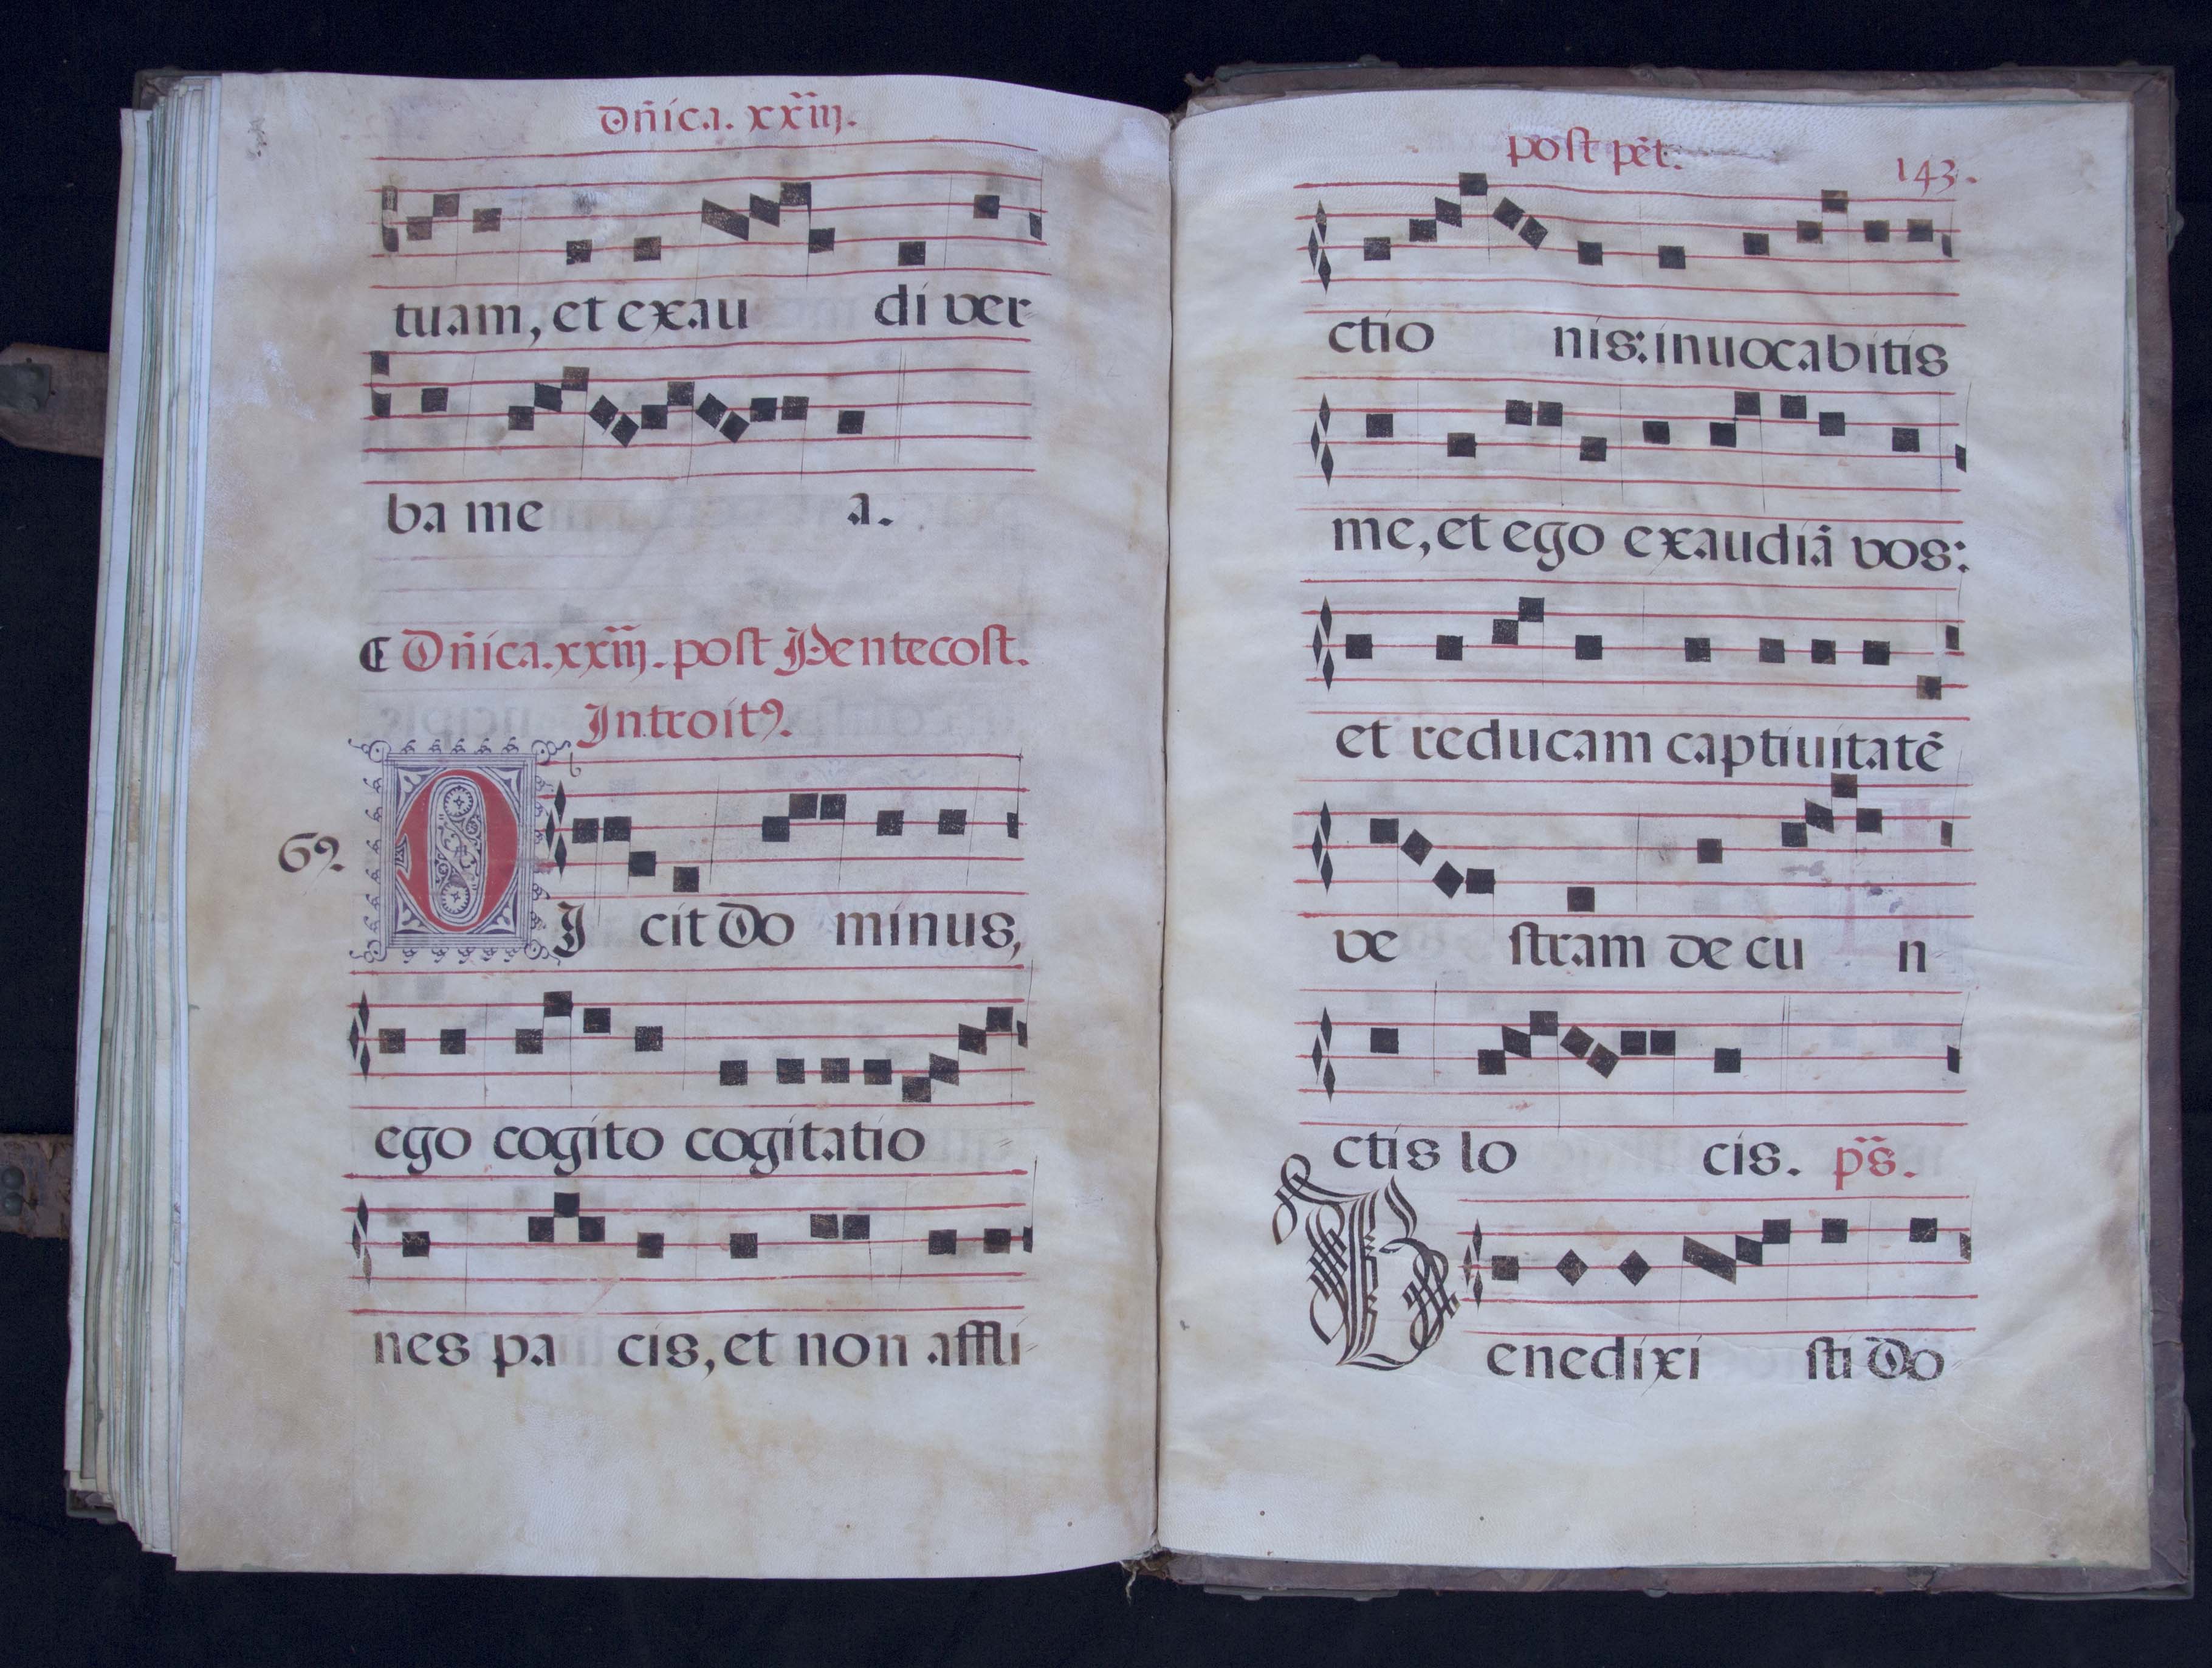 Dñica. xxiij.
tuam, et exau di ver
ba me a.
Dñica. xxiij. post Pentecost.
Introitꝰ.
69.
DJ cit Do minus,
ego cogito cogitatio
nes pa cis, et non affli
post pẽt. 143.
ctio nis: inuocabitis
me, et ego exaudiã vos:
et reducam captiuitatẽ
ve stram de cu n
ctis lo cis. ps̃.
Benedixi sti Do